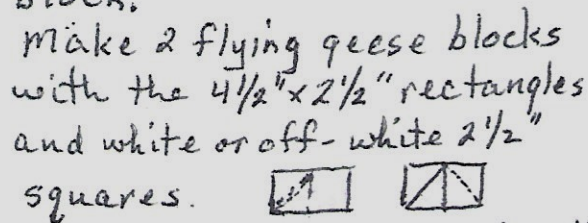 Make 2 flying geese blocks
with the 4 1/2" x 2 1/2" rectangles
and white or off-white 2 1/2"
squares.